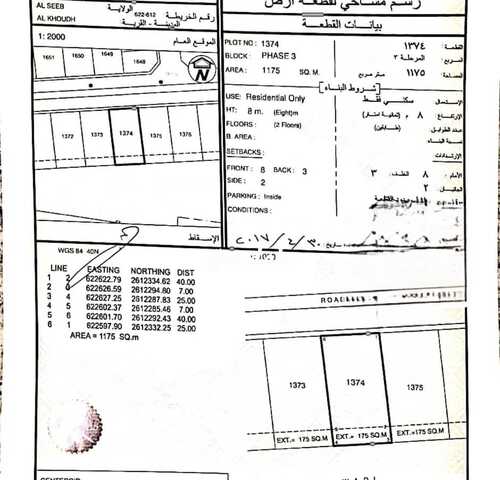 AL SEEB
الولاية
AL KHOUDH
622-612
رقم الخريطة
المدينة - القرية
1: 2000
الموقع العام
1651
1650
1649
1648
N
1372
1373
1374
1375
1376
الإسقاط
WGS 84 40N
LINE EASTING NORTHING DIST
1 2 622622.79 2612334.62 40.00
2 622626.59 2612294.80 7.00
3 4 622627.25 2612287.83 25.00
4 5 622602.37 2612285.46 7.00
5 6 622601.70 2612292.43 40.00
6 1 622597.90 2612332.25 25.00
AREA = 1175 SQ.m
رسم مساحي لقطعة أرض
بيانات القطعة
PLOT NO : 1374
القطعة : ١٣٧٤
BLOCK : PHASE 3
المربع : المرحلة ٣
AREA : 1175 SQ. M
المساحة : ١١٧٥ متر مربع
شروط البناء
USE: Residential Only
الإستعمال : سكني فقط
HT: 8 m. (Eight)m
الإرتفاع : ٨ م (ثمانية أمتار)
FLOORS : (2 Floors)
عدد الطوابق : (طابقين)
B. AREA :
مساحة البناء :
SETBACKS:
الإرتدادات
FRONT : 8 BACK : 3
الأمام : ٨ الخلف : ٣
SIDE : 2
الجانبين : ٢
PARKING : Inside
CONDITIONS :
٢٠١٧/٤/٣٠
ROAD
1373
1374
1375
EXT.= 175 SQ.M
EXT.= 175 SQ.M
EXT.= 175 SQ.M